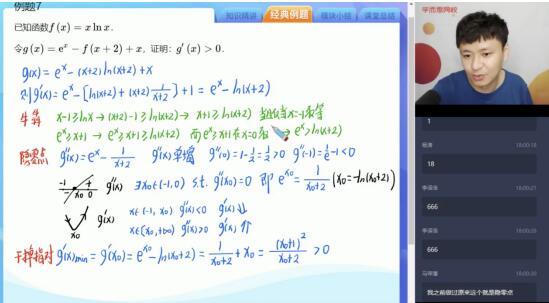 例题7
知识精讲 经典例题 模块小结 课堂总结
学而思网校
已知函数 f(x) = x ln x.
令 g(x) = e^x − f(x+2) + x，证明：g′(x) > 0.
g(x) = e^x − (x+2)ln(x+2) + x
则 g′(x) = e^x − [ln(x+2) + (x+2)·1/(x+2)] + 1 = e^x − ln(x+2)
x−1 ≥ ln x → (x+2)−1 ≥ ln(x+2) → x+1 ≥ ln(x+2) 当且仅当 x=−1取等
e^x ≥ x+1 → e^x ≥ x+1 ≥ ln(x+2) 而 e^x ≥ x+1在x=0取 → e^x > ln(x+2)
隐零点 g″(x) = e^x − 1/(x+2) g″(x)单增 g″(0) = 1 − 1/2 = 1/2 > 0 g″(−1) = 1/e − 1 < 0
−1 x0 0 g″(x) ∃x0∈(−1,0) s.t. g″(x0)=0 即 e^x0 = 1/(x0+2) (x0 = −ln(x0+2))
x0 g′(x) x∈(−1, x0) g″(x)<0 g′(x)↓
x∈(x0,+∞) g″(x)>0 g′(x)↑
干掉指对 g′(x)min = g′(x0) = e^x0 − ln(x0+2) = 1/(x0+2) + x0 = (x0+1)²/(x0+2) > 0
1
18:00:18
18
18:00:21
666
18:00:29
666
18:00:30
我之前做过原来这个就是隐零点